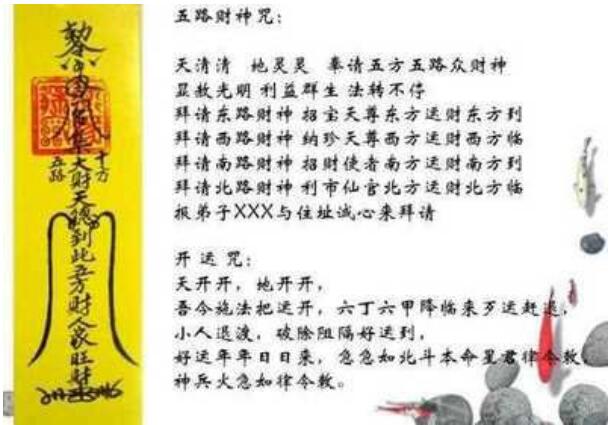 五路财神咒：
天清清 地灵灵 奉请五方五路众财神
显赦光明 利益群生 法转不停
拜请东路财神 招宝天尊东方运财东方到
拜请西路财神 纳珍天尊西方运财西方临
拜请南路财神 招财使者南方运财南方到
拜请北路财神 利市仙官北方运财北方临
报弟子XXX与住址诚心来拜请
开运咒：
天开开，地开开，
吾今施法把运开，六丁六甲降临来歹运赶退，
小人退渡，破除阻隔好运到，
好运年年日日来，急急如北斗本命星君律令敕，
神兵火急如律令敕。
十方
五路
大财天聪到此五方财人家旺财